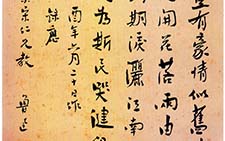 豈有豪情似舊
花開花落兩由
期淚灑江南
為斯民哭健
酉年六月二十日作
録應
景宋仁兄教
魯迅